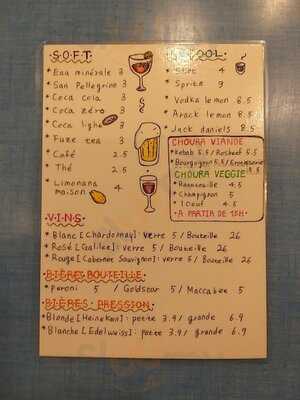 SOFT
* Eau minérale 3
* San Pellegrino 3
* Coca cola 3
* Coca zéro 3
* Coca light 3
* Fuze tea 3
* Café 2.5
* Thé 2.5
* Limonana maison 4
OOL
4
* Spritz 9
Vodka lemon 8.5
Arack lemon 8.5
Jack daniels 8.5
CHOURA VIANDE
* Kebab 5.5/
* Bourguignon 5.5/
CHOURA VEGGIE
* Ratatouille 4.5
* Champignon 5
* 1 Oeuf 4.5
* A PARTIR DE 15H*
VINS
* Blanc [Chardonnay]: verre 5 / Bouteille 26
* Rosé [Galilee]: verre 5 / Bouteille 26
* Rouge [Cabernet Sauvignon]: verre 5 / Bouteille 26
BIÈRES BOUTEILLE
* Peroni 5 / Goldstar 5 / Maccabee 5
BIÈRES PRESSION
* Blonde [Heineken]: petite 3.9 / grande 6.9
* Blanche [Edelweiss]: petite 3.9 / grande 6.9